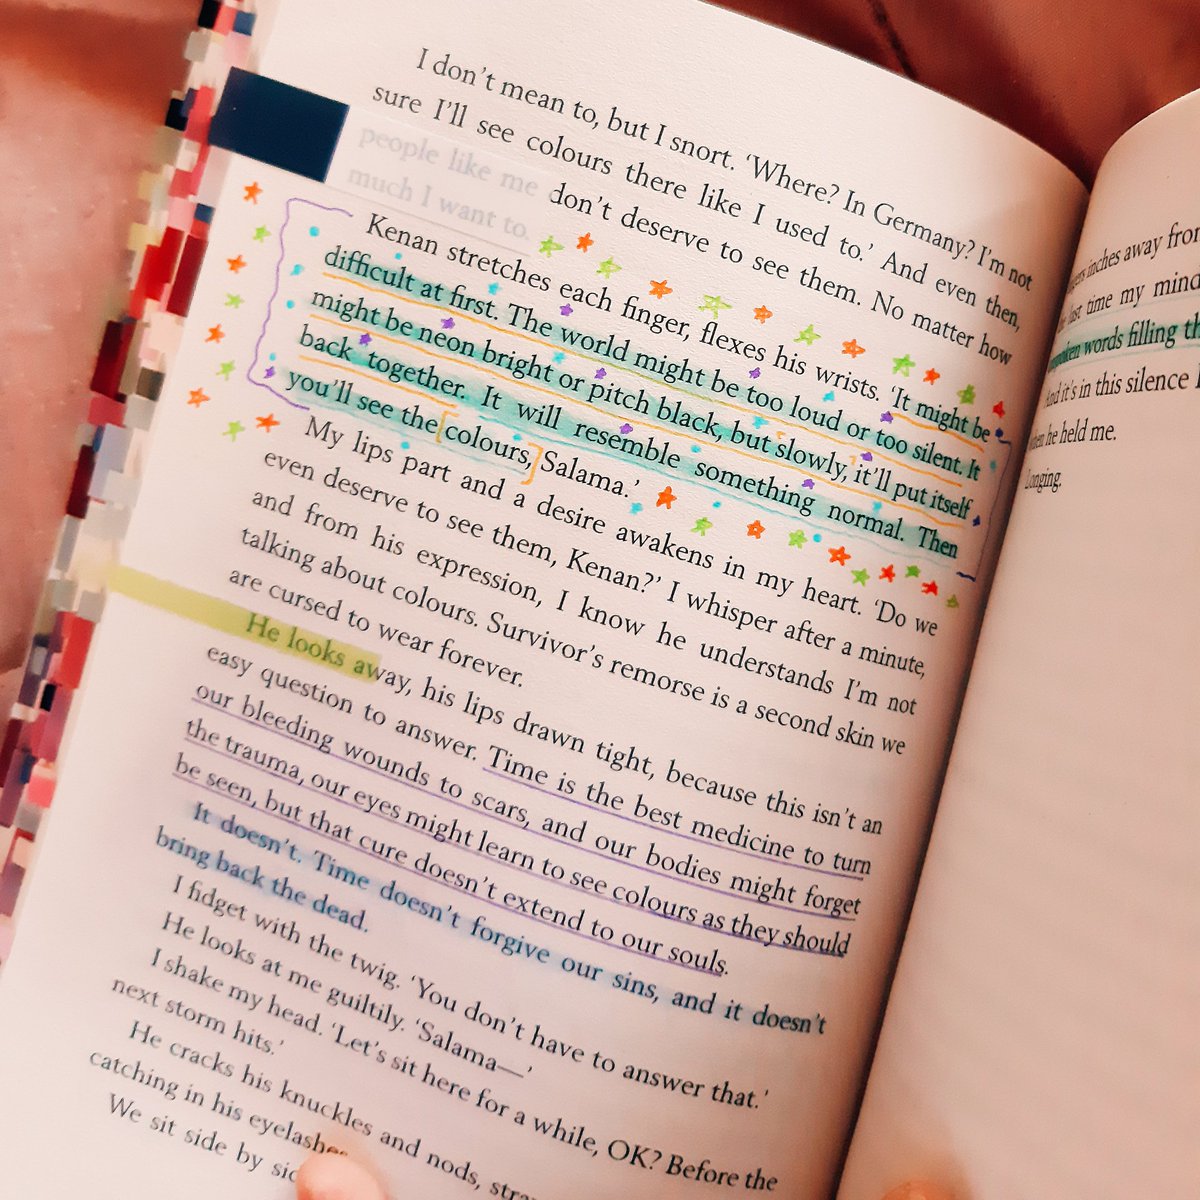 I don't mean to, but I snort. 'Where? In Germany? I'm not
sure I'll see colours there like I used to.' And even then,
people like me don't deserve to see them. No matter how
much I want to.
Kenan stretches each finger, flexes his wrists. 'It might be
difficult at first. The world might be too loud or too silent. It
might be neon bright or pitch black, but slowly, it'll put itself
back together. It will resemble something normal. Then
you'll see the colours, Salama.'
My lips part and a desire awakens in my heart. 'Do we
even deserve to see them, Kenan?' I whisper after a minute,
and from his expression, I know he understands I'm not
talking about colours. Survivor's remorse is a second skin we
are cursed to wear forever.
He looks away, his lips drawn tight, because this isn't an
easy question to answer. Time is the best medicine to turn
our bleeding wounds to scars, and our bodies might forget
the trauma, our eyes might learn to see colours as they should
be seen, but that cure doesn't extend to our souls.
It doesn't. Time doesn't forgive our sins, and it doesn't
bring back the dead.
I fidget with the twig. 'You don't have to answer that.'
He looks at me guiltily. 'Salama—'
I shake my head. 'Let's sit here for a while, OK? Before the
next storm hits.'
He cracks his knuckles and nods,
catching in his eyelashes
We sit side by
inches away
last time my mind
words filling
And it's in this silence
he held me.
Longing.